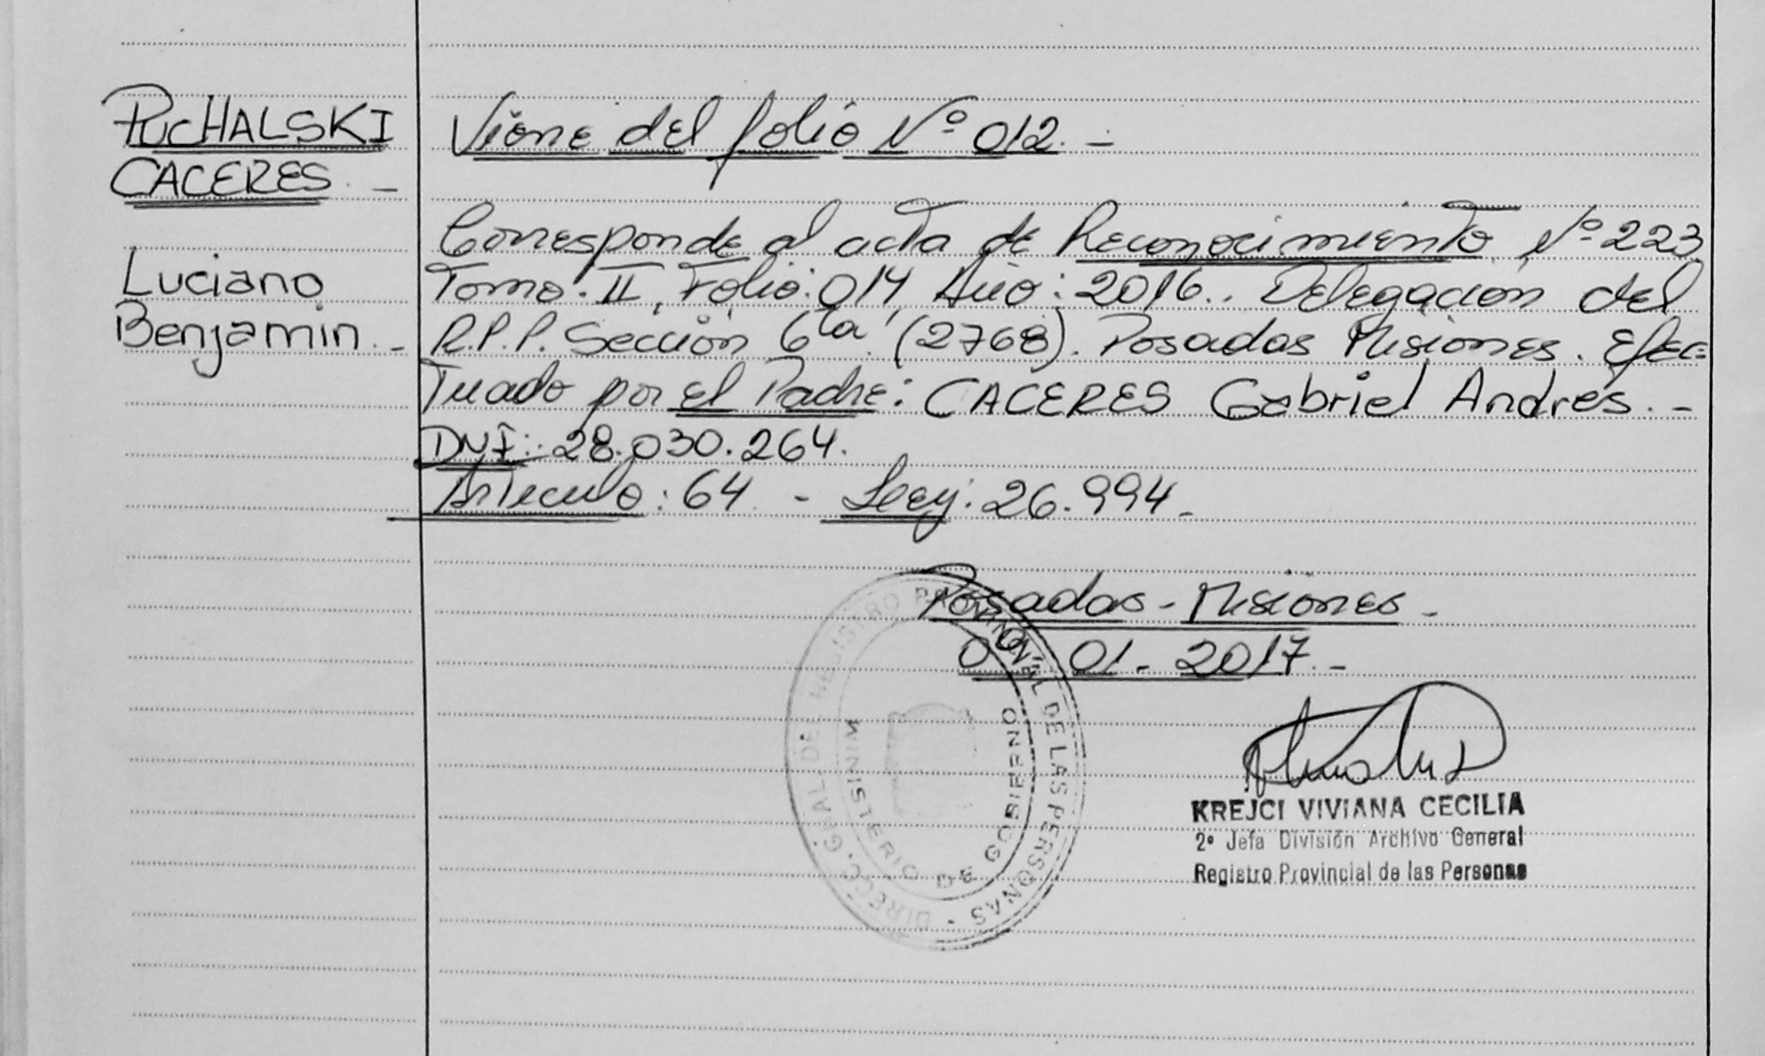 PUCHALSKI
CACERES. -
Luciano
Benjamin. -
Viene del folio Nº 012. -
Corresponde al acta de Reconocimiento Nº 223
Tomo: II, Folio: 014 Año: 2016. Delegación del
R.P.P. Sección 6ta (2768). Posadas Misiones. Efec=
tuado por el Padre: CACERES Gabriel Andrés. -
DNI: 28.030.264.
Articulo: 64 - Ley: 26.994 -
Posadas - Misiones -
01. 2017. -
KREJCI VIVIANA CECILIA
2º Jefa División Archivo General
Registro Provincial de las Personas
DIRECC. GRAL DEL REGISTRO PROVINCIAL DE LAS PERSONAS -
MINISTERIO DE GOBIERNO